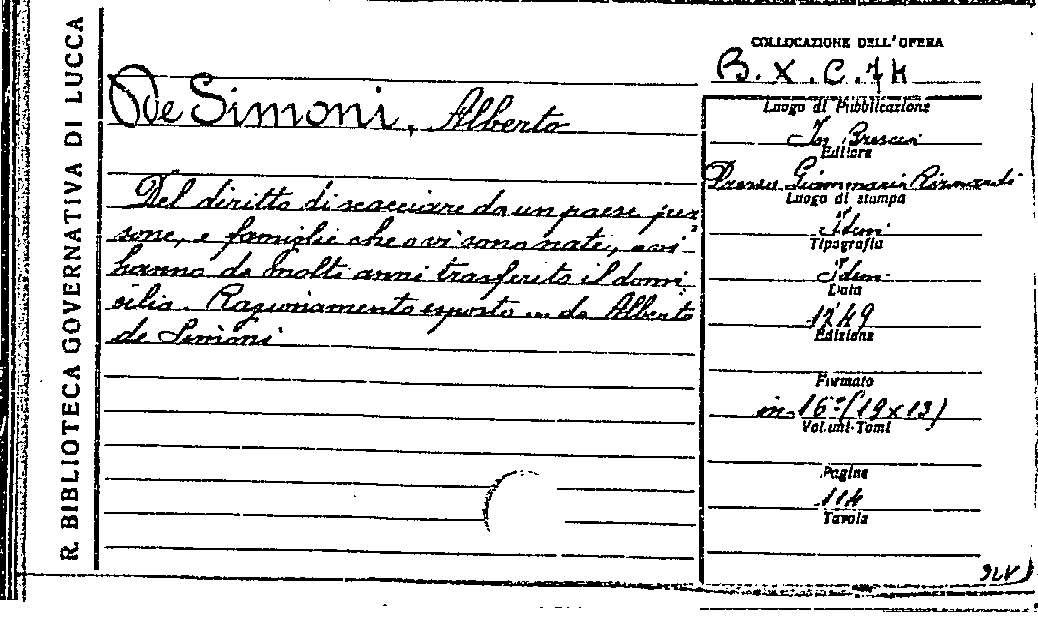 R. BIBLIOTECA GOVERNATIVA DI LUCCA
De Simoni, Alberto
Del diritto di scacciare da un paese per
sone, e famiglie che o vi sono nate, o vi
hanno da molti anni trasferito il domi
cilio. Ragionamento esposto ... da Alberto
de Simoni
COLLOCAZIONE DELL'OPERA
B. X. C. 74
Luogo di Pubblicazione
In Brescia
Editore
Presso Giammaria Rizzardi
Luogo di stampa
Idem
Tipografia
Idem
Data
Edizione
Formato
in-16º (19x13)
Volumi-Tomi
Pagine
114
Tavole